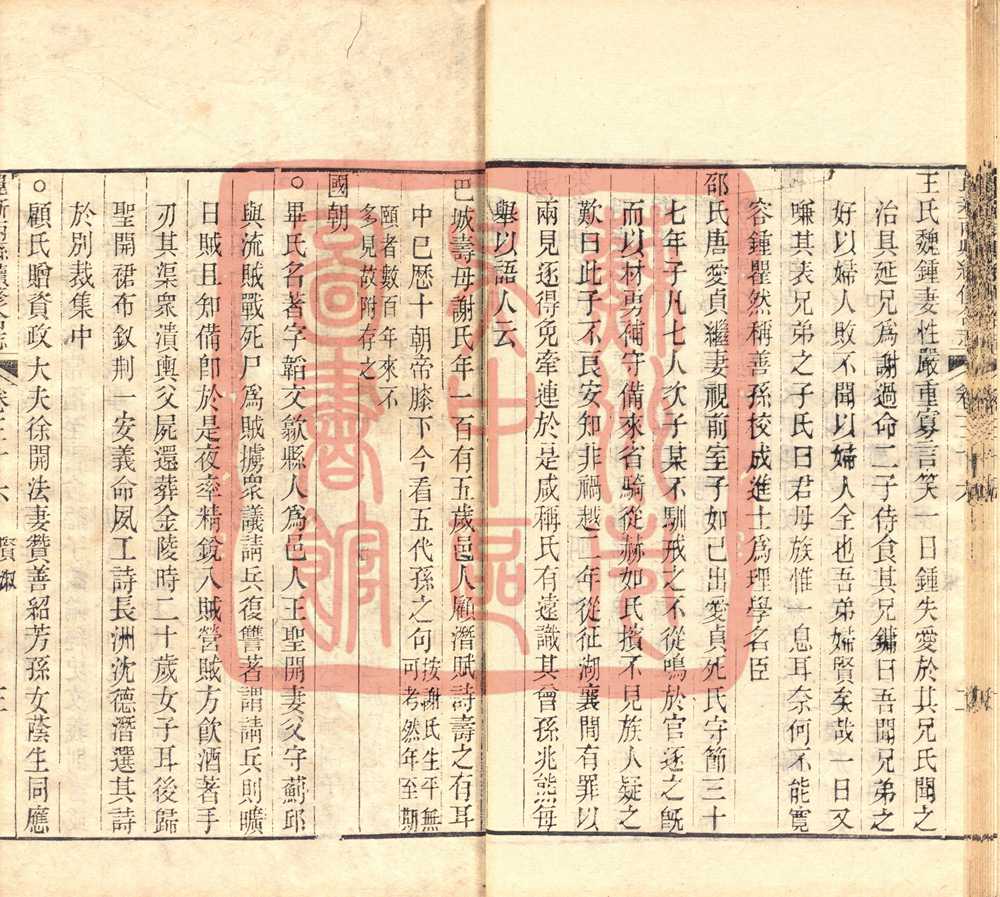 王氏魏鍾妻性嚴重寡言笑一日鍾失愛於其兄氏聞之
治具延兄爲謝過命二子侍食其兄鏞曰吾聞兄弟之
好以婦人敗不聞以婦人全也吾弟婦賢矣哉一日又
嗛其表兄弟之子氏曰君母族惟一息耳奈何不能寬
容鍾瞿然稱善孫校成進士爲理學名臣
邵氏唐愛貞繼妻視前室子如己出愛貞死氏守節三十
七年子凡七人次子某不馴戒之不從鳴於官逐之旣
而以材勇補守備來省騎從赫如氏擯不見族人疑之
歎曰此子不良安知非禍越二年從征湖襄間有罪以
兩見逐得免牽連於是咸稱氏有遠識其曾孫兆熊每
舉以語人云
巴城壽母謝氏年一百有五歲邑人顧潛賦詩壽之有耳
中已歷十朝帝膝下今看五代孫之句
按謝氏生平無
可考然年至期
頤者數百年來不
多見故附存之
國朝
○畢氏名著字韜文歙縣人爲邑人王聖開妻父守薊邱
與流賊戰死尸爲賊擄衆議請兵復讐著謂請兵則曠
日賊且知備卽於是夜率精銳入賊營賊方飮酒著手
刃其渠衆潰輿父屍還葬金陵時二十歲女子耳後歸
聖開裙布釵荆一安義命夙工詩長洲沈德潛選其詩
於別裁集中
○顧氏贈資政大夫徐開法妻贊善紹芳孫女蔭生同應
賢淑
蘇州市
吳中區
圖書館